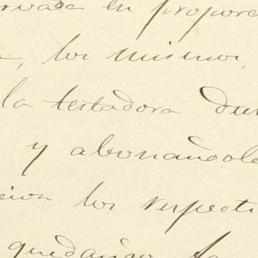 rvada en propor
, los mismos,
la testadora du
y abonandole
cion los respecti
quedando la